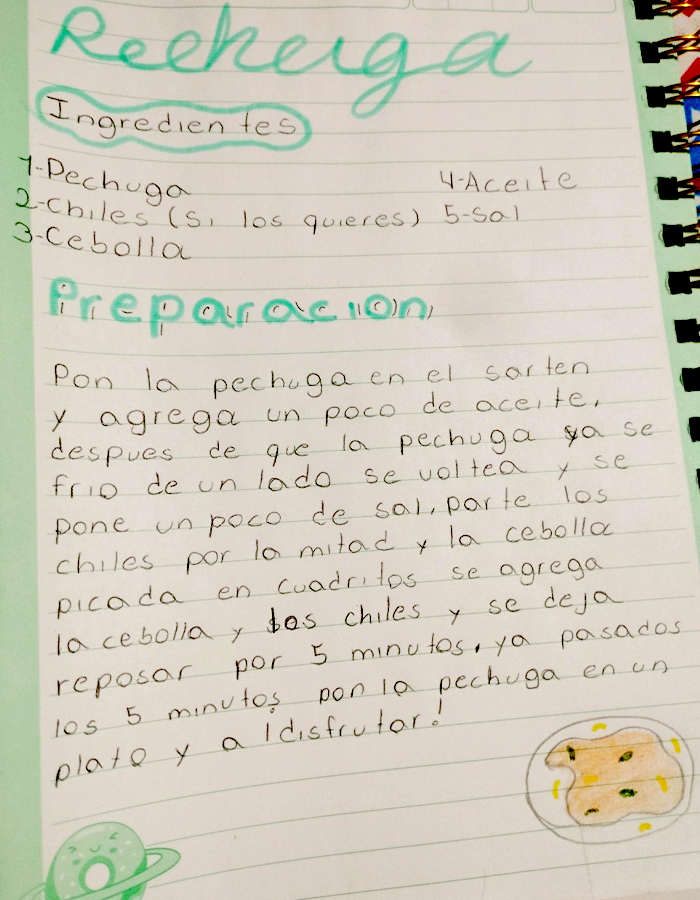 Pechuga
Ingredientes
1-Pechuga
2-Chiles (si los quieres)
3-Cebolla
4-Aceite
5-Sal
Preparacion
Pon la pechuga en el sarten
y agrega un poco de aceite,
despues de que la pechuga ya se
frio de un lado se voltea y se
pone un poco de sal, parte los
chiles por la mitad y la cebolla
picada en cuadritos se agrega
la cebolla y los chiles y se deja
reposar por 5 minutos, ya pasados
los 5 minutos pon la pechuga en un
plato y a ¡disfrutar!